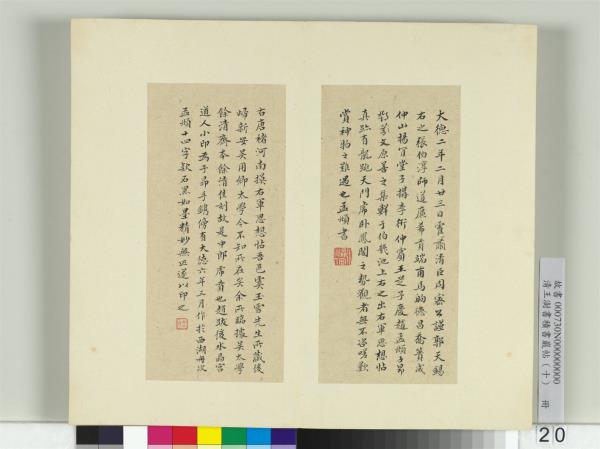 大德二年二月廿三日霍肅清臣周密公謹郭天錫
右之張伯淳師道廉希貢端甫馬昫德昌喬簣成
仲山楊肯堂子構李衎仲賓王芝子慶趙孟頫子昂
鄧文原善之集鮮于伯幾池上右之出右軍思想帖
真跡有龍跳天門虎臥鳳閣之勢觀者無不咨嗟歎
賞神物之難遇也孟頫書
右唐褚河南摸右軍思想帖吾邑玉雪先生所藏後
歸新安吳用卿太學今不知所在矣余所臨據吳太學
餘清齋本餘清佳刻故是中郎虎賁也趙跋後水晶宮
道人小印為子昂手鐫傍有大德六年三月作於西湖舟次
孟頫十四字款石黑如墨精妙無匹遂以印之
故書000730N000000000
清王澍書積書巖帖(十) 冊
20